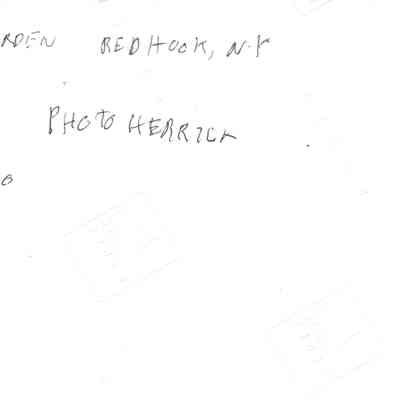 RDEN RED HOOK, N.Y
PHOTO HERRICK